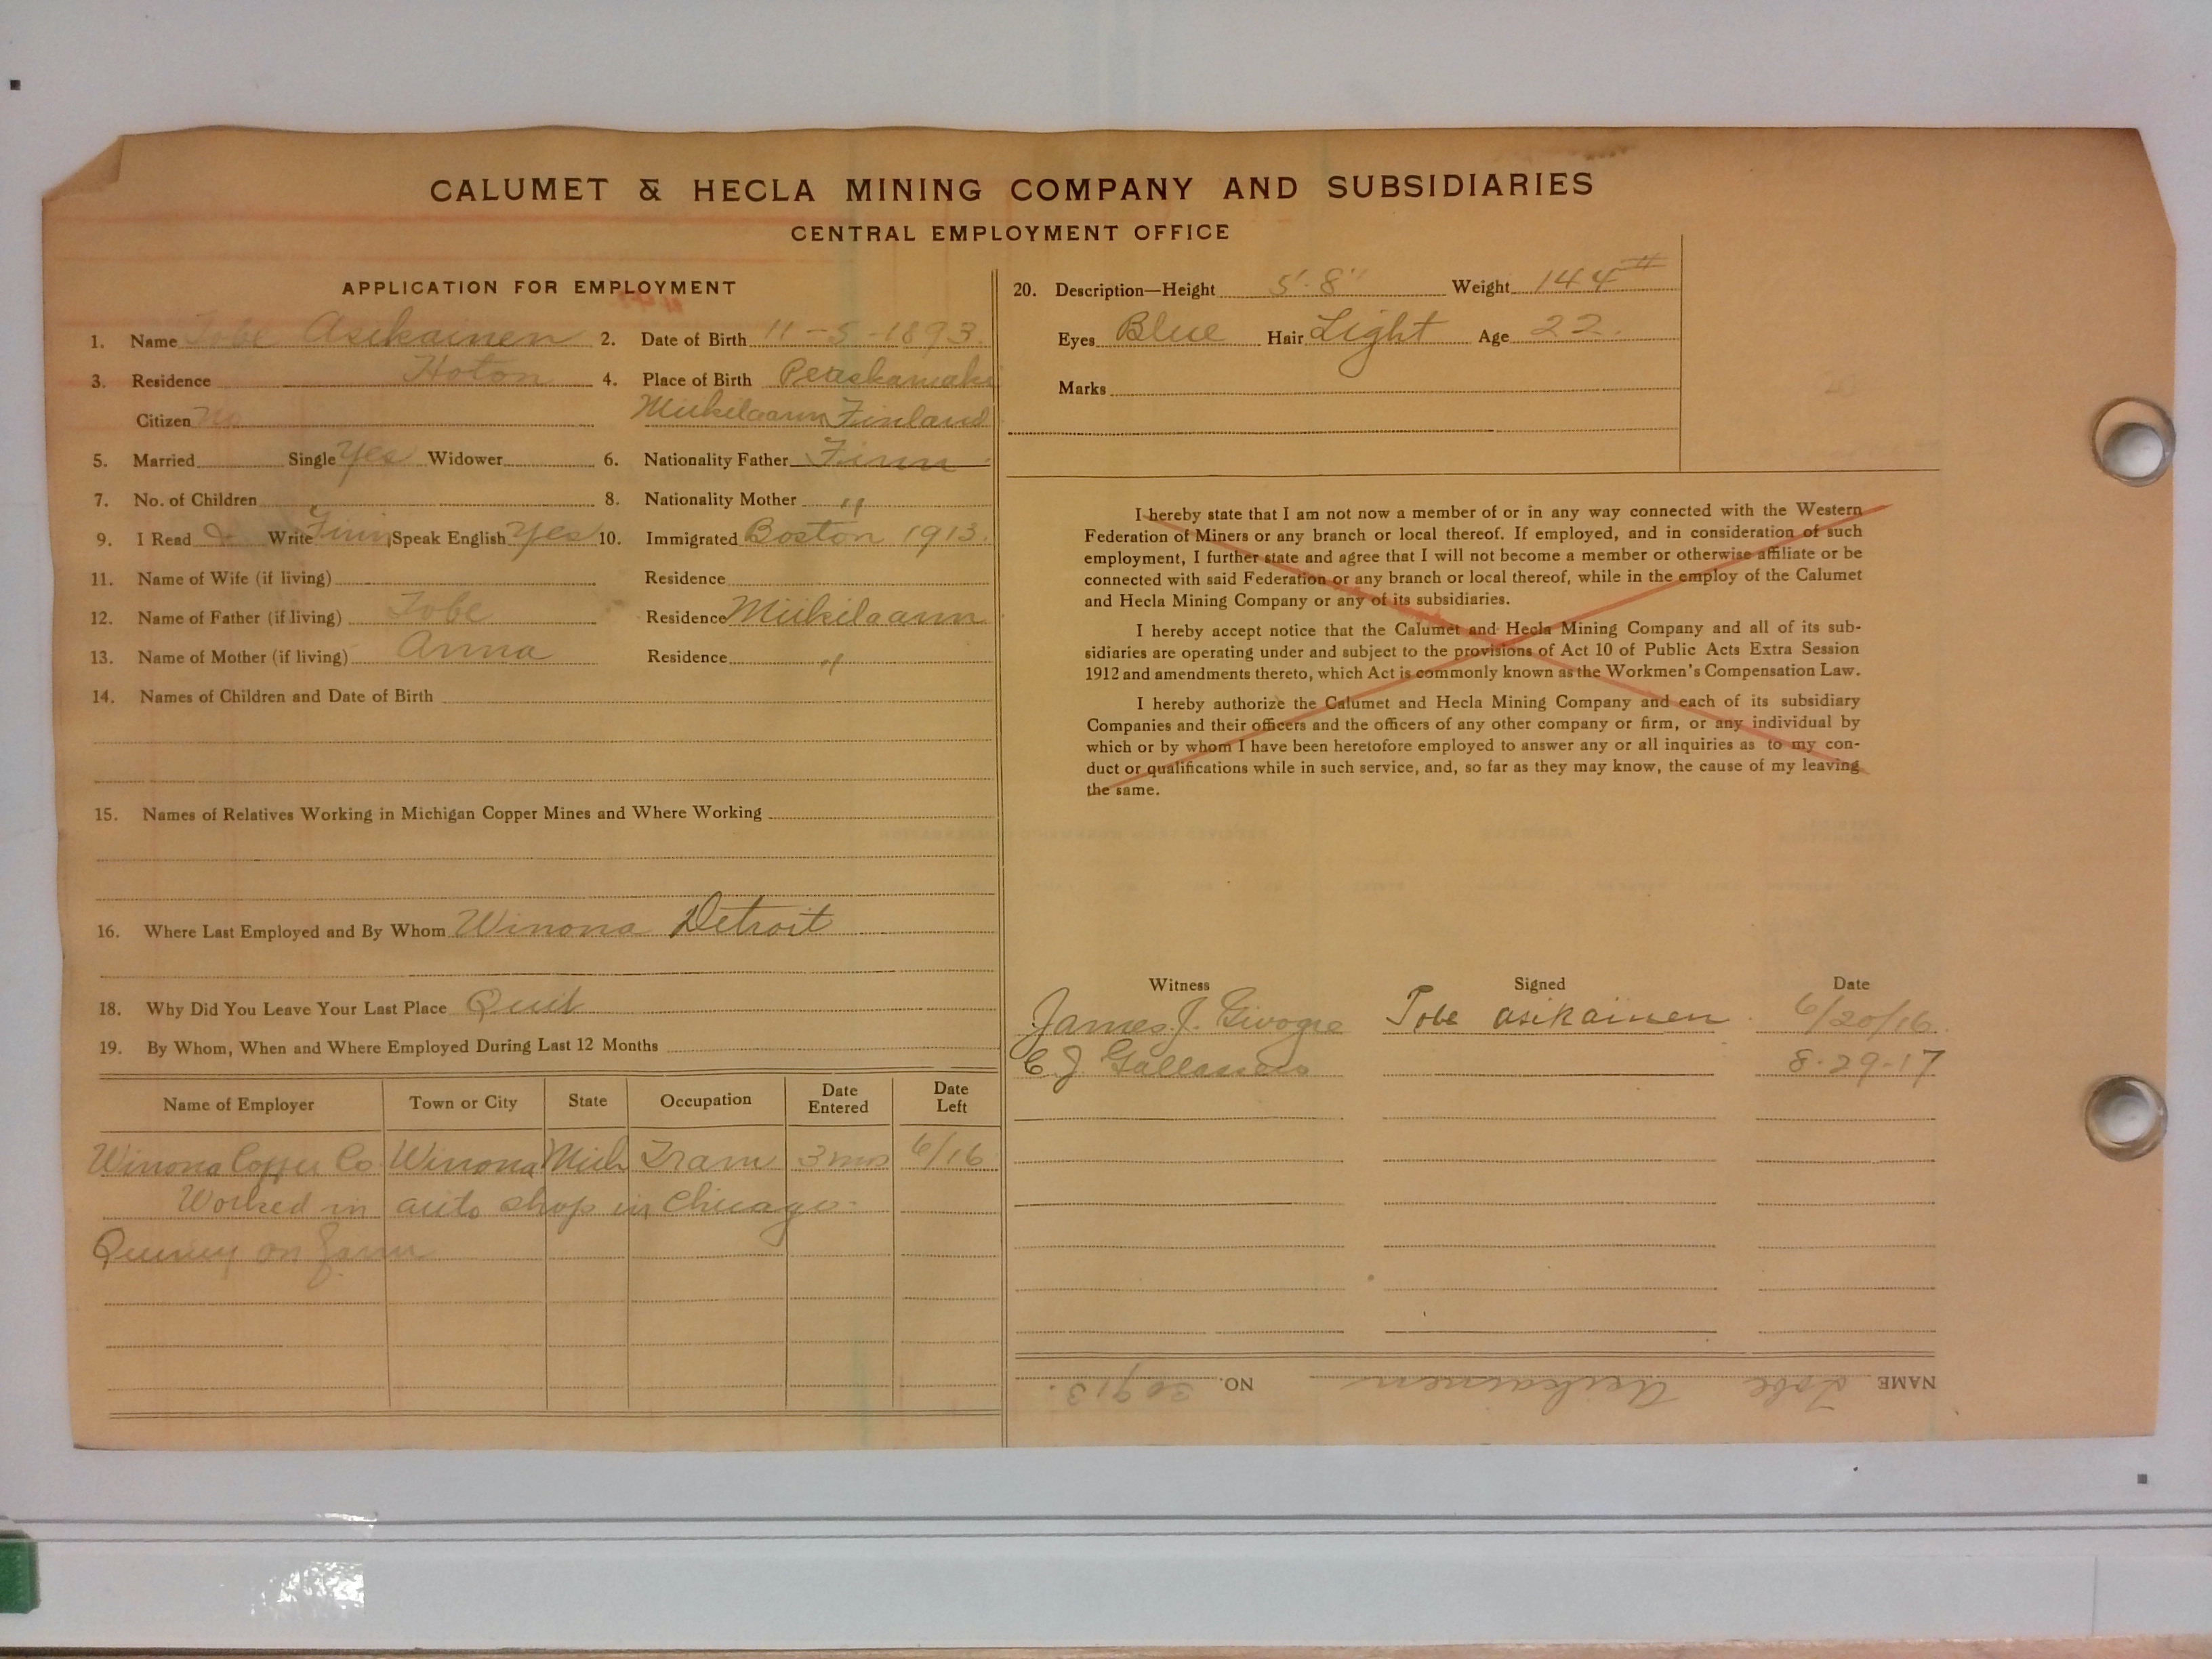 CALUMET & HECLA MINING COMPANY AND SUBSIDIARIES
CENTRAL EMPLOYMENT OFFICE
APPLICATION FOR EMPLOYMENT
1. Name Tobe Asikainen 2. Date of Birth 11-5-1893.
3. Residence Hoton 4. Place of Birth
Citizen No Finland
5. Married Single Yes Widower 6. Nationality Father Finn
7. No. of Children 8. Nationality Mother "
9. I Read & Write Finn, Speak English Yes 10. Immigrated Boston 1913.
11. Name of Wife (if living) Residence
12. Name of Father (if living) Tobe Residence Miikilaann
13. Name of Mother (if living) Anna Residence "
14. Names of Children and Date of Birth
15. Names of Relatives Working in Michigan Copper Mines and Where Working
16. Where Last Employed and By Whom Winona Detroit
18. Why Did You Leave Your Last Place Quit
19. By Whom, When and Where Employed During Last 12 Months
Name of Employer Town or City State Occupation Date Entered Date Left
Winona Copper Co Winona Mich Tram 3 mos 6/16
Worked in auto shop in Chicago.
Quincy on farm
20. Description—Height 5'-8" Weight 144#
Eyes Blue Hair Light Age 22.
Marks
I hereby state that I am not now a member of or in any way connected with the Western
Federation of Miners or any branch or local thereof. If employed, and in consideration of such
employment, I further state and agree that I will not become a member or otherwise affiliate or be
connected with said Federation or any branch or local thereof, while in the employ of the Calumet
and Hecla Mining Company or any of its subsidiaries.
I hereby accept notice that the Calumet and Hecla Mining Company and all of its sub-
sidiaries are operating under and subject to the provisions of Act 10 of Public Acts Extra Session
1912 and amendments thereto, which Act is commonly known as the Workmen's Compensation Law.
I hereby authorize the Calumet and Hecla Mining Company and each of its subsidiary
Companies and their officers and the officers of any other company or firm, or any individual by
which or by whom I have been heretofore employed to answer any or all inquiries as to my con-
duct or qualifications while in such service, and, so far as they may know, the cause of my leaving
the same.
Witness Signed Date
James J. Tobe asikainen 6/20/16.
C. J. 8-29-17
NAME Tobe Asikainen NO. 30913.